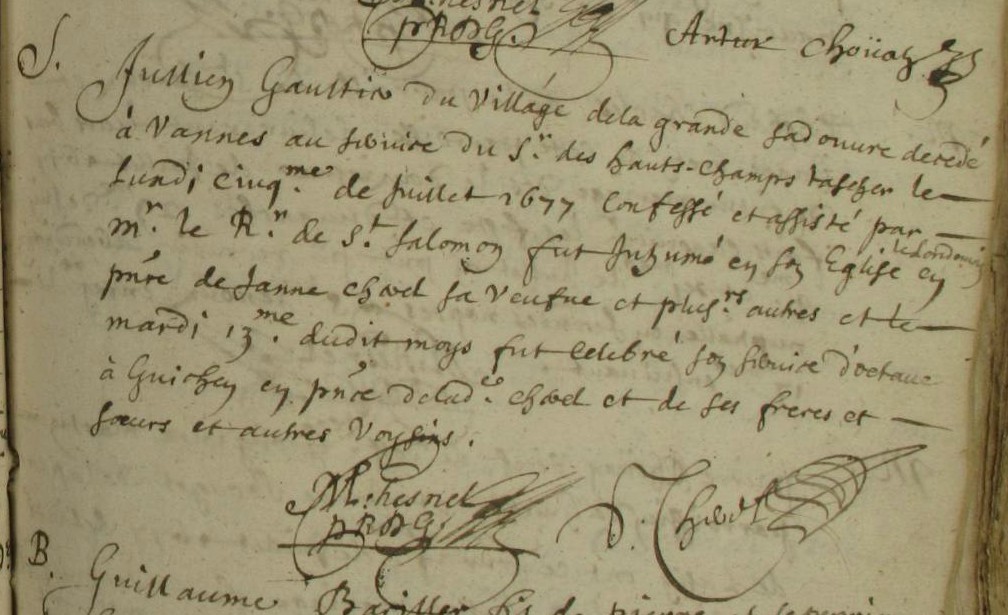 M. Chesnel
PRDG. Artur Choüan
S. Jullien Gaultier du Village dela grande sadouure decedé
à Vannes au seruice du Sr. des hauts-champs tascher le
Lundi cinq.me de Juillet 1677 Confessé et assisté par
mr. le Rr. de St. salomon fut Inhumé en son Eglise le lendemain en
pnce de Janne choel sa Veufue et plusrs. autres et le
mardi 13me. dudit moys fut celebré son seruice d'octaue
à Guichen en pnce delade. choel et de ses freres et
sœurs et autres Voysins.
M. Chesnel
PRDG.
Choel
B. Guillaume fils de pierre